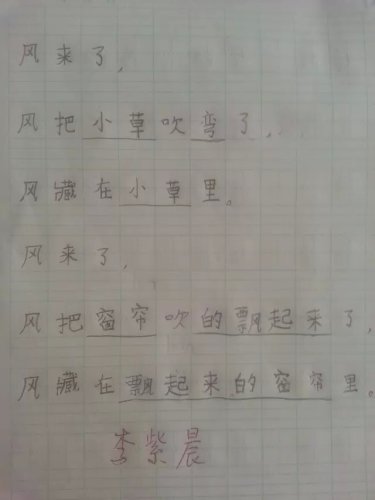 风来了，
风把小草吹弯了，
风藏在小草里。
风来了，
风把窗帘吹的飘起来了，
风藏在飘起来的窗帘里。
李紫晨